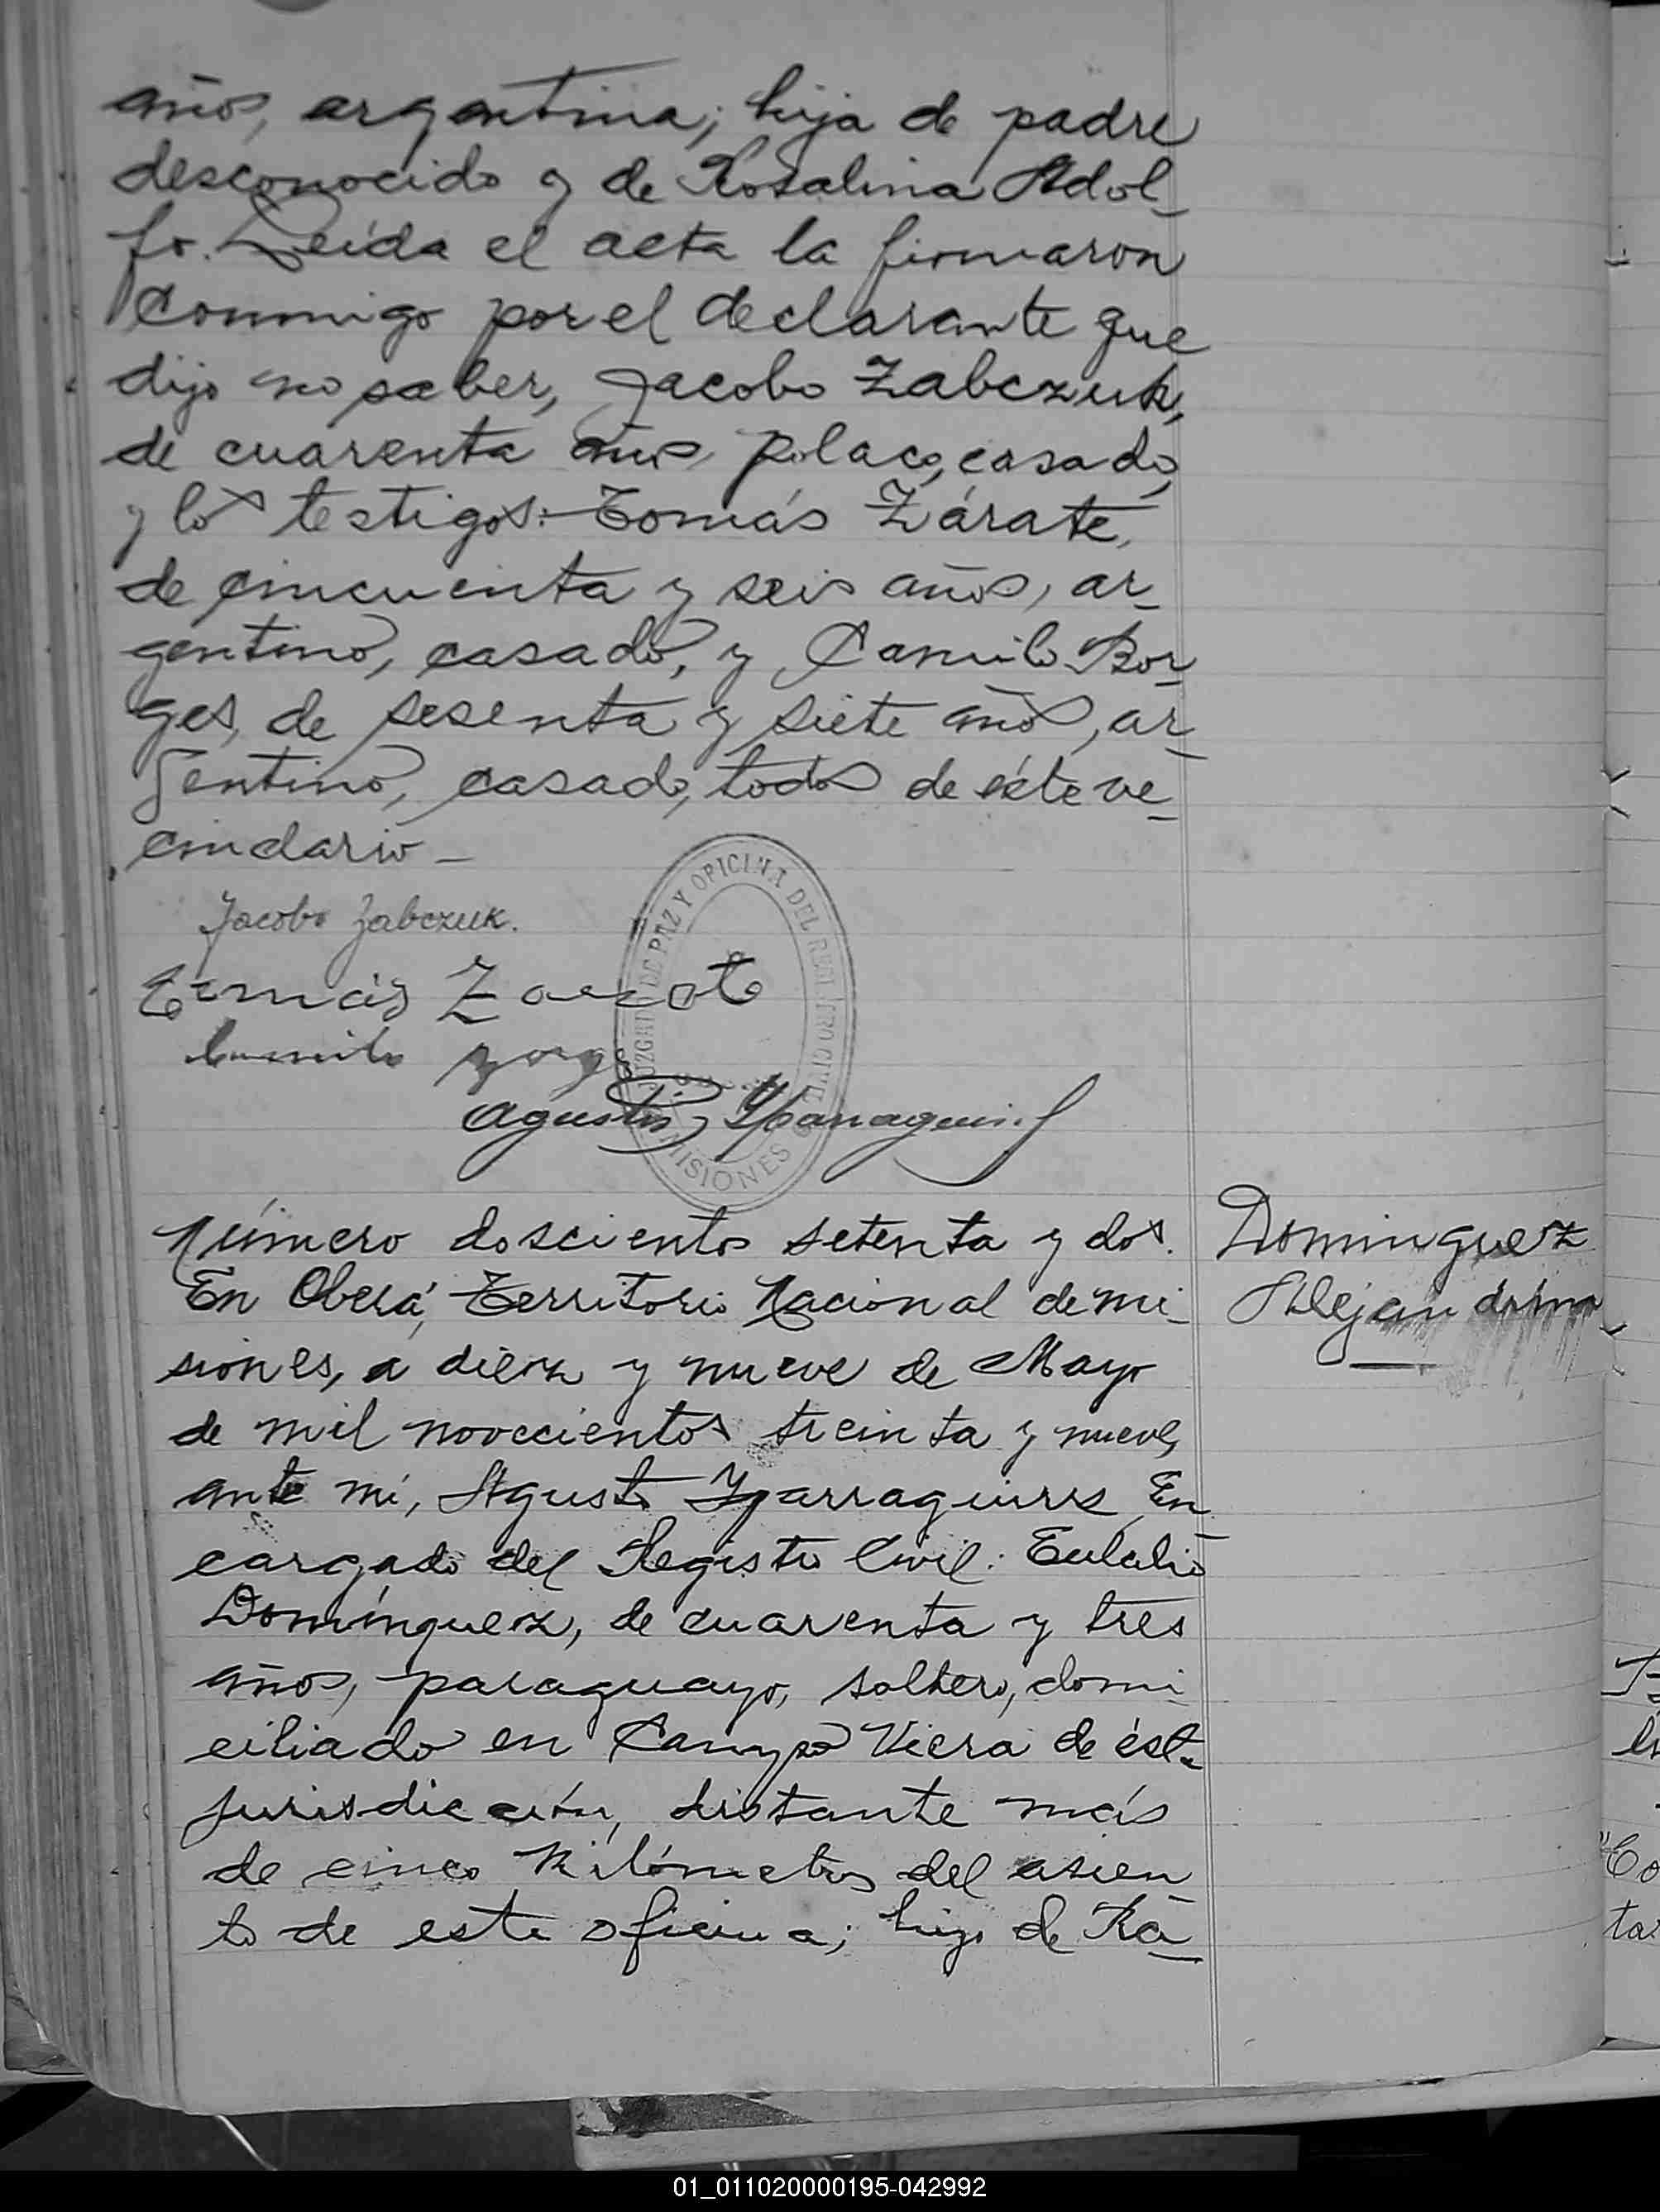 años, argentina; hija de padre
desconocido y de Rosalina Adol-
fo. Leída el acta la firmaron
conmigo por el declarante que
dijo no saber, Jacobo Zabczuk,
de cuarenta años, polaco, casado,
y los testigos: Tomás Zárate,
de cincuenta y seis años, ar-
gentino, casado, y Camilo Bor-
ges, de sesenta y siete años, ar-
gentino, casado, todos de éste ve-
cindario-
Jacobo Zabczuk.
Tomás Zarate
Camilo
Agustin
JUZGADO DE PAZ Y OFICINA DEL REGISTRO CIVIL
MISIONES
Número doscientos setenta y dos.
Dominguez
Alejandrina
En Oberá, Territorio Nacional de Mi-
siones, a diez y nueve de Mayo
de mil novecientos treinta y nueve,
ante mí, Agustin Yparraguirre, En-
cargado del Registro Civil: Eulalio
Domínguez, de cuarenta y tres
años, paraguayo, soltero, domi-
ciliado en Campo Viera de ésta
jurisdicción, distante más
de cinco kilómetros del asien-
to de esta oficina; hijo de Ra-
01_011020000195-042992